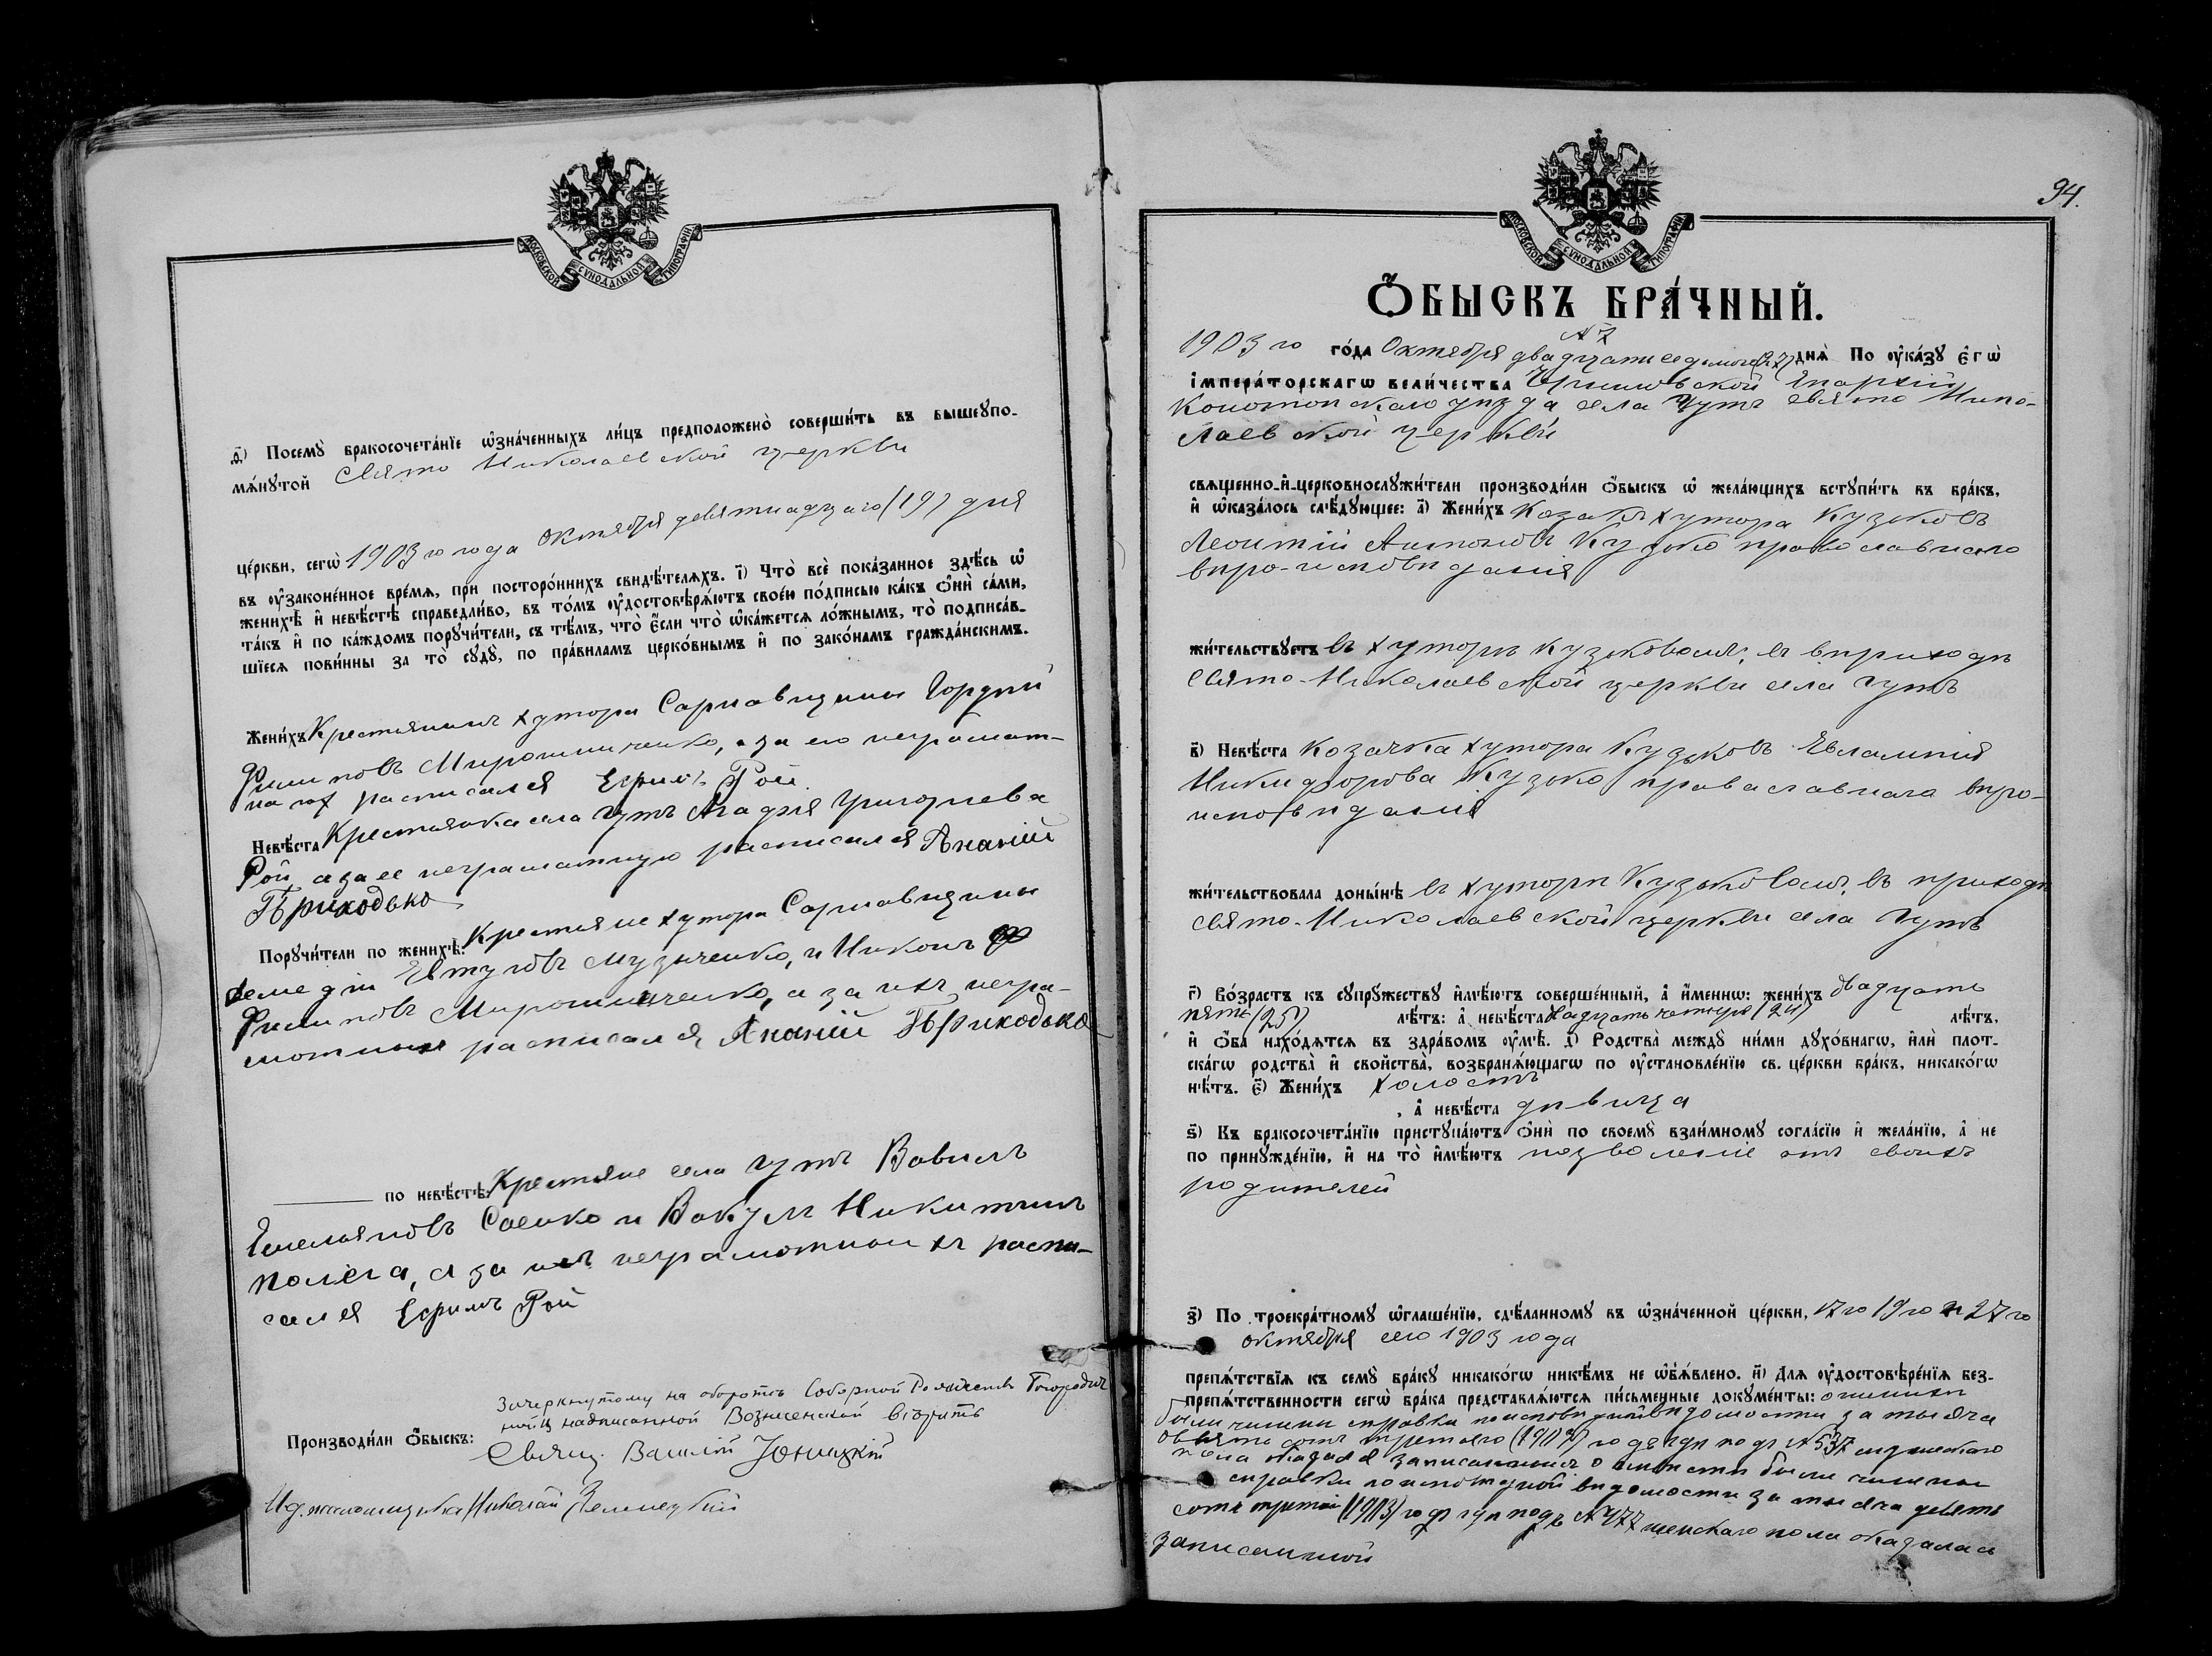 МОСКОВСКОЙ СѴНОДАЛЬНОЙ ТИПОГРАФІИ
д҃) Посемꙋ̀ бракосочета́нїе ѡ҆зна́ченныхъ ли́цъ предположено̀ соверши́ть въ вышеупо-
мѧ́нꙋтой Свято Николаевской церкви
це́ркви, сегѡ̀ 1903 го года октября девятнадцаго (19) дня
въ ᲂу҆зако́неное вре́мѧ, при посторо́ннихъ свидѣ́телѧхъ. і҃) Что̀ всѐ пока́занное здѣ́сь ѡ҆
женихѣ̀ и҆ невѣ́стѣ справедли́во, въ то́мъ ᲂу҆достовѣрѧ́ютъ свое́ю по́дписью ка́къ ѻ҆нѝ са́ми,
та́къ и҆ по ка́ждомъ порꙋчи́тели, съ тѣ́мъ, что̀ є҆́сли что̀ ѡ҆ка́жется ло́жнымъ, то̀ подписа́в-
шїеся пови́нны за то̀ сꙋдꙋ̀, по пра́виламъ церко́внымъ и҆ по зако́намъ гражда́нскимъ.
Жени́хъ Крестьянинъ хутора Сарнавщины Гордѣй
Филиповъ Мирошниченко, а за его неграмот-
наго расписался Ефимъ Рой
Невѣ́ста Крестьянка села Гутъ Агафія Григориева
Рой, а за ее неграмотную расписался Ананій
Приходько
Порꙋчи́тели по женихѣ̀: Крестьяне хутора Сарнавщины
Евтуховъ Музыченко, и Никонъ
Филиповъ Мирошниченко, а за ихъ негра-
мотныхъ расписался Ананій Приходько
по невѣ́стѣ: Крестьяне села Гутъ Вавилъ
Емельяновъ Саенко и Вакулъ Никитинъ
а за ихъ неграмотныхъ распи-
сался Ефимъ Рой
Зачеркнутому на оборотѣ Соборной Рождества Богородич
ной и надписанной Вознесенской вѣрить
Производи́ли ѻ҆́быскъ: Свящ. Василій Юницкій
И. д. псаломщика Николай
94.
МОСКОВСКОЙ СѴНОДАЛЬНОЙ ТИПОГРАФІИ
Ѻ҆́БЫСКЪ БРА́ЧНЫЙ.
№ 7
1903 го го́да Октября двадцати седьмого (27) днѧ̀ По ᲂу҆ка́зꙋ є҆гѡ̀
і҆мпера́торскагѡ вели́чества Черниговской Епархіи
Конотопскаго уѣзда села Гутъ свято Нико-
лаевской церкви
свѧщенно-и҆-церковнослꙋжи́тели производи́ли ѻ҆́быскъ ѡ҆ жела́ющихъ встꙋпи́ть въ бра́къ,
и҆ ѡ҆каза́лось слѣ́дꙋющее: а҃) Жени́хъ Козакъ хутора Кузьковъ
Леонтій Антоновъ Кузько православнаго
вѣро-исповѣданія
жи́тельствꙋетъ въ хуторѣ Кузьковомъ, въ приходѣ
Свято-Николаевской церкви села Гутъ
в҃) Невѣ́ста Козачка хутора Кузьковъ Евлампія
Никифорова Кузько, православнаго вѣро-
исповѣданія
жи́тельствовала доны́нѣ въ хуторѣ Кузьковомъ, въ приходѣ
Свято-Николаевской церкви села Гутъ
г҃) Во́зрастъ къ сꙋпрꙋ́жествꙋ и҆мѣ́ютъ соверше́нный, а҆ и҆́меннѡ: жени́хъ двадцать
пять (25) лѣ́тъ: а҆ невѣ́ста двадцать четыре (24) лѣ́тъ,
и҆ ѻ҆́ба нахо́дѧтся въ здра́вомъ ᲂу҆мѣ̀. д҃) Родства̀ междꙋ̀ ни́ми дꙋхо́внагѡ, и҆лѝ плот-
ска́гѡ родства̀ и҆ сво́йства, возбранѧ́ющагѡ по ᲂу҆становле́нїю св. це́ркви бра́къ, никако́гѡ
нѣ́тъ. є҃) Жени́хъ холостъ
, а҆ невѣ́ста дѣвица
ѕ҃) Къ бракосочета́нїю пристꙋпа́ютъ ѻ҆нѝ по своемꙋ̀ взаи́мномꙋ согла́сїю и҆ жела́нїю, а҆ не
по принꙋжде́нїю, и҆ на то̀ и҆мѣ́ютъ позволеніе отъ своихъ
родителей
з҃) По троекра́тномꙋ ѡ҆глаше́нїю, сдѣ́ланномꙋ въ ѡ҆зна́ченной це́ркви, 17 го 19 го и 27 го
октября сего 1903 года
препѧ́тствїѧ къ семꙋ̀ бра́кꙋ никако́гѡ никѣ́мъ не ѡ҆б̾ѧ́влено. и҃) Длѧ ᲂу҆достовѣре́нїѧ без-
препѧ́тственности сегѡ̀ бра́ка представлѧ́ются пи́сьменные докꙋме́нты: о женихѣ
были чинены справки по исповѣдной вѣдомости за тысяча
девять сотъ третьяго (1903) годъ гдѣ подъ № 537 мужескаго
пола оказался записаннымъ о невѣстѣ были чинены
справки по исповѣдной вѣдомости за тысяча девять
сотъ третій (1903) годъ гдѣ подъ № 477 женскаго пола оказалась
записанной